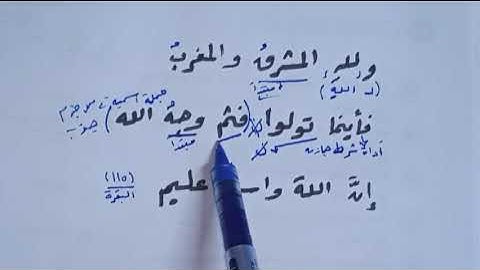 ولله المشرقُ والمغربُ
(لـ / الله) مبتدأ
جملة اسمية في محل جزم جواب
فأينما تولوا (فثم وجهُ الله)
أداة شرط جازمة مبتدأ
إنَّ اللهَ عليم
(١١٥) البقرة